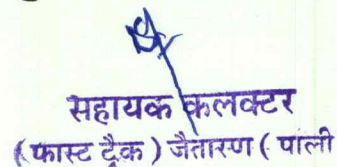 सहायक कलक्टर
(फास्ट ट्रैक) जैतारण (पाली